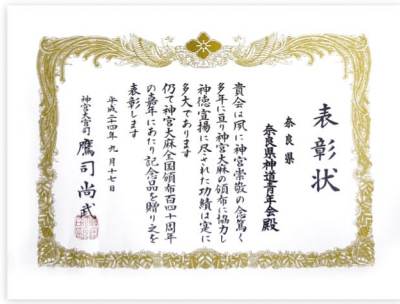 表彰状
奈良県
奈良県神道青年会殿
貴会は夙に神宮崇敬の念篤く
多年に亘り神宮大麻の頒布に協力し
神徳宣揚に尽された功績は寔に
多大であります
仍て神宮大麻全国頒布百四十周年
の嘉年にあたり記念品を贈り之を
表彰します
平成二十四年九月十七日
神宮大宮司 鷹司尚武